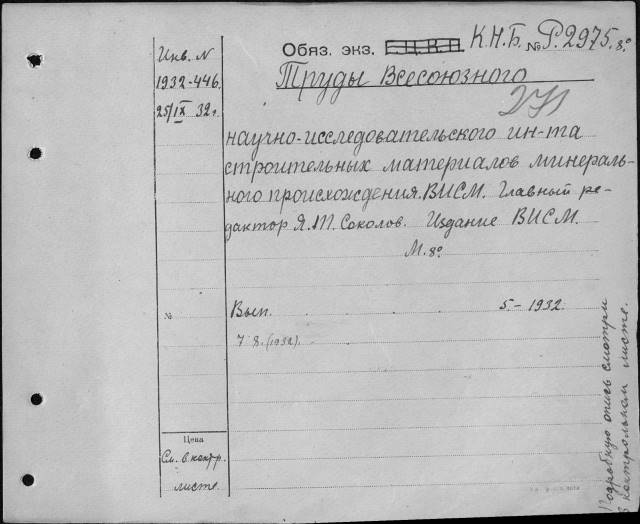 Обяз. экз. Г.Ц.К.П. К.Н.Б. № Р.2975. 8°
Инв. N
1932-446.
25/IX 32 г.
Труды Всесоюзного
271
научно-исследовательского ин-та
строительных материалов минераль-
ного происхождения. ВИСМ. Главный ре-
дактор Я.М. Соколов. Издание ВИСМ.
М. 8°
№ Вып. 5 - 1932.
7 8. (1932).
Цена
См. в контр.
листе.
Подробную опись смотри
в контрольном листе.